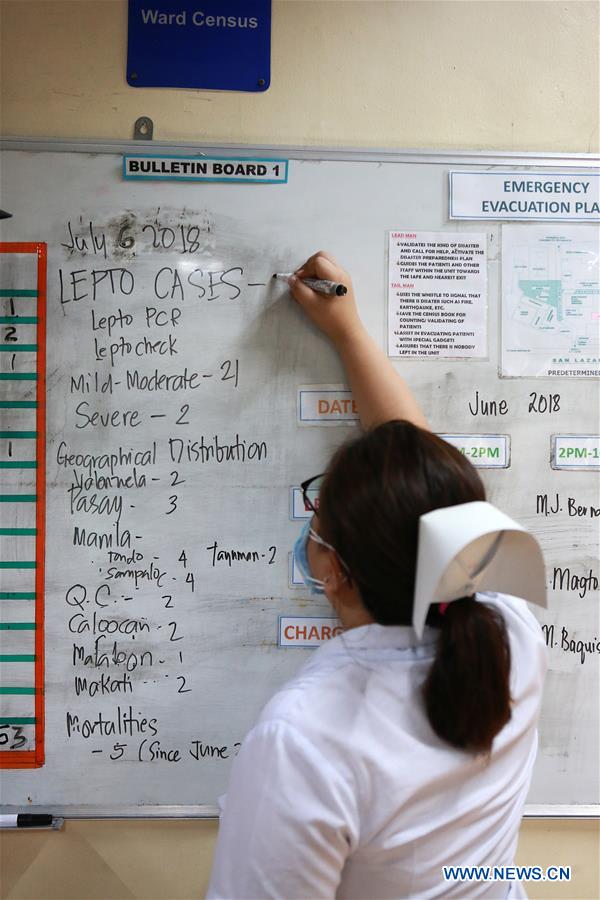 Ward Census
BULLETIN BOARD 1
EMERGENCY
EVACUATION PLA
July 6 2018
LEPTO CASES -
Lepto PCR
Leptocheck
Mild-Moderate - 21
Severe - 2
Geographical Distribution
Valannela - 2
Pasay - 3
Manila -
Tondo - 4
Sampaloc - 4
Q.C. - 2
Caloocan - 2
Malabon - 1
Makati - 2
Mortalities
- 5 (Since June
1
2
1
1
53
LEAD MAN
VALIDATES THE KIND OF DISASTER
AND CALL FOR HELP, ACTIVATE THE
DISASTER PREPAREDNESS PLAN
GUIDES THE PATIENTS AND OTHER
STAFF WITHIN THE UNIT TOWARDS
THE SAFE AND NEAREST EXIT
TAIL MAN
USES THE WHISTLE TO SIGNAL THAT
THERE IS DISASTER SUCH AS FIRE,
EARTHQUAKE, ETC.
SAVE THE CENSUS BOOK FOR
COUNTING/ VALIDATING OF
PATIENTS
ASSIST IN EVACUATING PATIENTS
WITH SPECIAL GADGETS
ASSURES THAT THERE IS NOBODY
LEFT IN THE UNIT
SAN LAZA
PREDETERMINE
DATE
June 2018
M-2PM
2PM-1
M.J. Berna
Magto
M. Baquis
CHARG
WWW.NEWS.CN